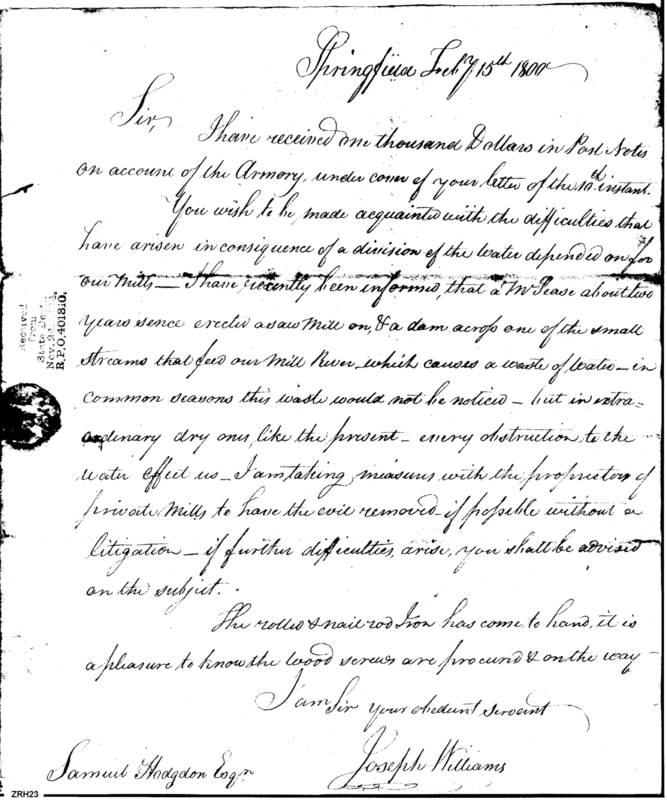 Springfield Feby 15th 1800
Sir,
I have received one thousand Dollars in Post Notes
on account of the Armory, under cover of your letter of the 10th instant.
You wish to be made acquainted with the difficulties that
have arisen in consiquence of a division of the water depended on for
our Mills — I have recently been informed, that a Mr Pease about two
years sence erected a saw Mill on, & a dam across one of the small
streams that feed our Mill River, which causes a waste of water — in
common seasons this waste would not be noticed — but in extra=
ordinary dry ones, like the present — every obstruction to the
water effect us — I am taking measures with the proprietors of
private Mills to have the evil removed — if possible without a
litigation — if further difficulties arise, you shall be advised
on the subject.
The rolled & nail rod Iron has come to hand, it is
a pleasure to know the wood screws are procured & on the way —
I am Sir your obedient servant
Joseph Williams
Samuel Hodgdon Esqr
Received
from
State
Nov. 2
R.P.O. 401310.
ZRH23